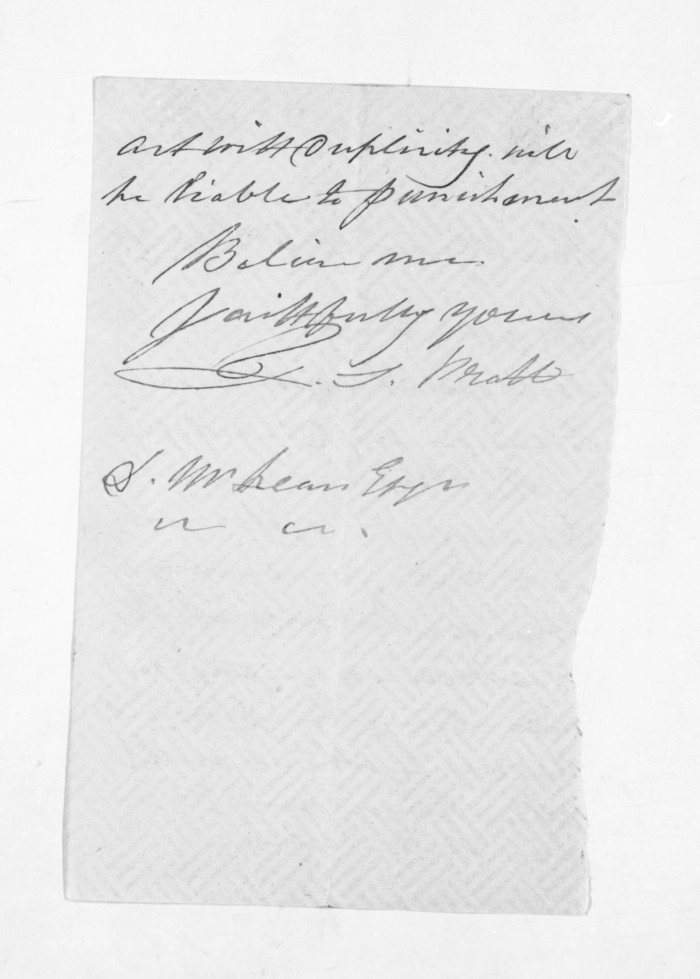 act with Duplicity. will
be liable to punishment
Believe me
Faithfully yours
T. S. Pratt
D. McLean Esqr